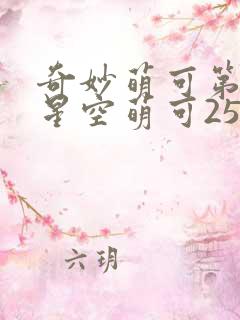 奇妙萌可第
星空萌可25
六玥